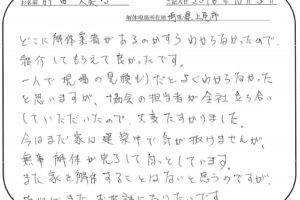 お名前
ご記入日 2016年10月3日
解体現場所在地 埼玉県上尾市
どこに解体業者があるのかすらわからなかったので、
紹介してもらえて良かったです。
一人で現場の見積もりだとよくわからなかった
と思いますが、協会の担当者が全社立ち合い
していただいたので、大変たすかりました。
今はまだ家は建築中で気が抜けませんが、
無事解体が完了してほっとしています。
また家を解体することはないと思うのですが、
お世話になりたいです